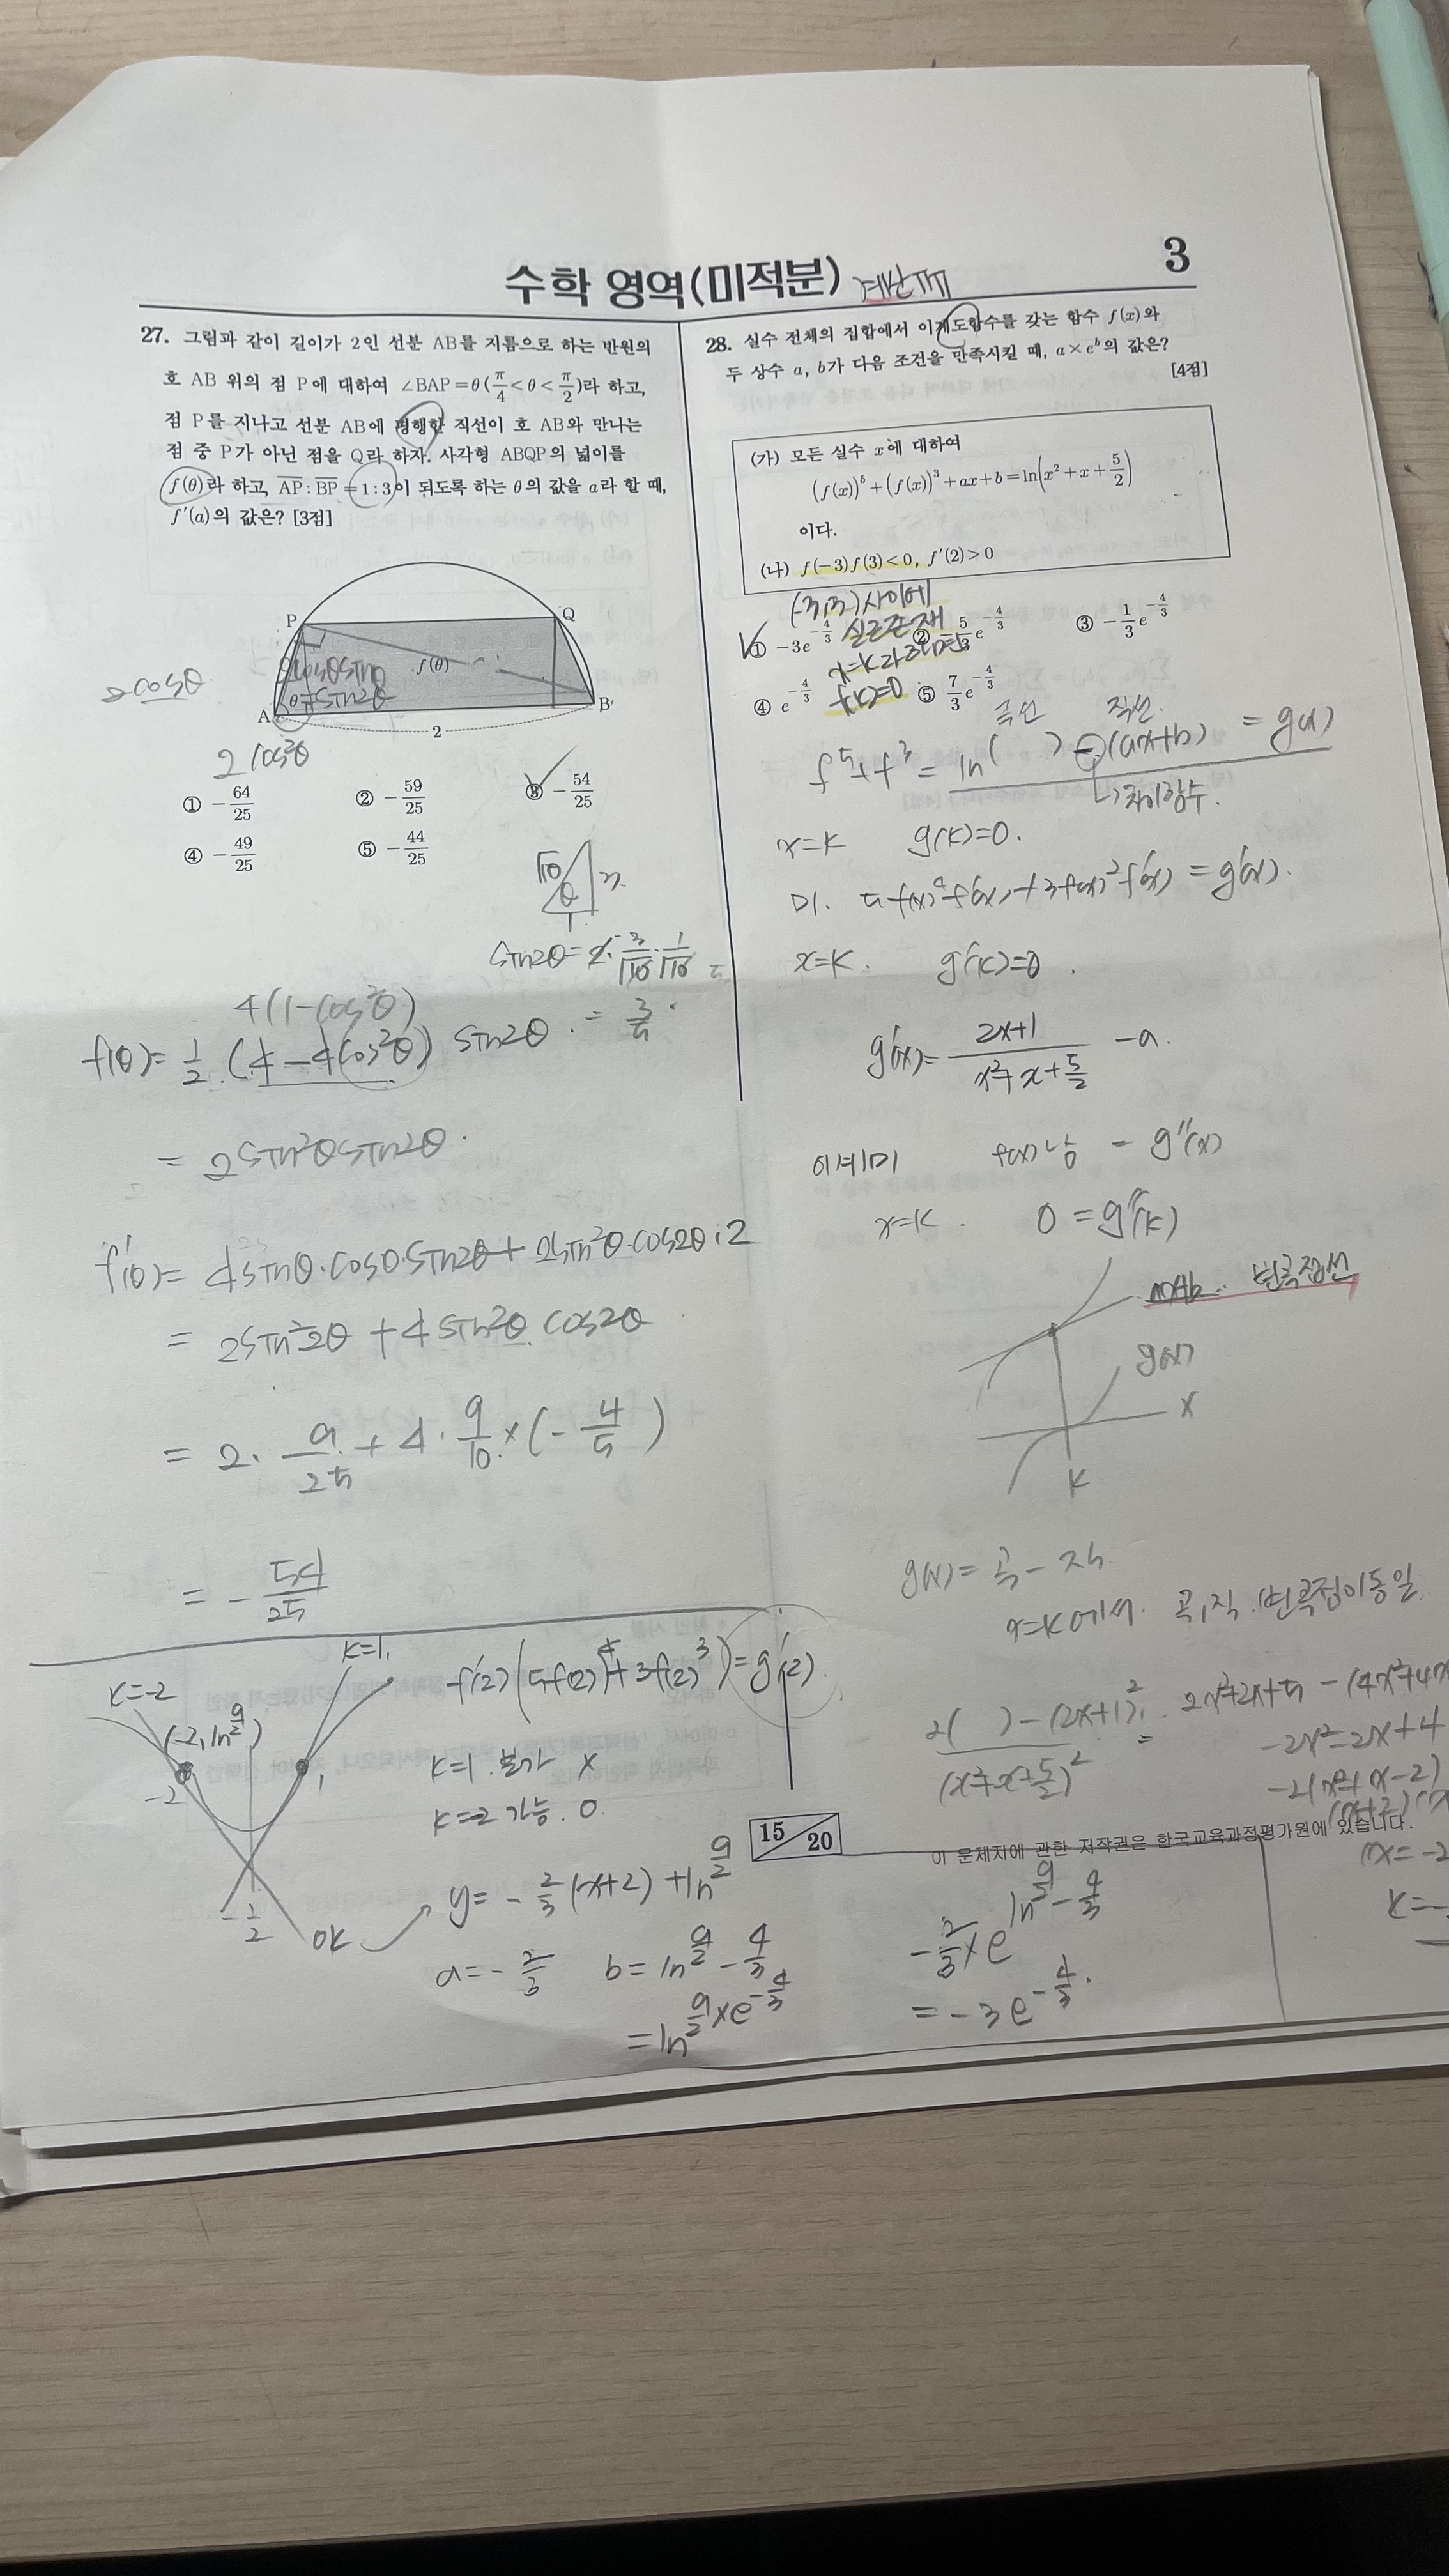 수학 영역(미적분)
계산
3
27. 그림과 같이 길이가 2인 선분 AB를 지름으로 하는 반원의
호 AB 위의 점 P에 대하여 ∠BAP=θ(π/4<θ<π/2)라 하고,
점 P를 지나고 선분 AB에 평행한 직선이 호 AB와 만나는
점 중 P가 아닌 점을 Q라 하자. 사각형 ABQP의 넓이를
f(θ)라 하고, AP : BP = 1 : 3이 되도록 하는 θ의 값을 a라 할 때,
f′(a)의 값은? [3점]
P
Q
f(θ)
2cosθsinθ
=sin2θ
θ
A
B
2
2cosθ
2cos²θ
① -64/25
② -59/25
③ -54/25
④ -49/25
⑤ -44/25
√10
θ
3
1
sin2θ=2·3/√10·1/√10
= 3/5
4(1-cos²θ)
f(θ)= 1/2 (4-4cos²θ) sin2θ
= 2sin²θsin2θ
f′(θ)= 4sinθ·cosθ·sin2θ+2sin²θ·cos2θ·2
= 2sin²2θ+4sin²θ cos2θ
= 2·9/25+4·9/10×(-4/5)
= -54/25
28. 실수 전체의 집합에서 이계도함수를 갖는 함수 f(x)와
두 상수 a, b가 다음 조건을 만족시킬 때, a×e^b의 값은?
[4점]
(가) 모든 실수 x에 대하여
(f(x))⁵+(f(x))³+ax+b=ln(x²+x+5/2)
이다.
(나) f(-3)f(3)<0, f′(2)>0
(-3,3)사이에
실근존재
x=k라 하면
f(k)=0
① -3e^(-4/3)
② -5/3e^(-4/3)
③ -1/3e^(-4/3)
④ e^(-4/3)
⑤ 7/3e^(-4/3)
곡선 직선
f⁵+f³ = ln( ) -(ax+b) = g(x)
↳차이함수.
x=k g(k)=0.
미. 5f(x)⁴f′(x)+3f(x)²f′(x)=g′(x).
x=k. g′(k)=0.
g′(x)= (2x+1)/(x²+x+5/2) -a.
이계미 f(x)남 = g″(x)
x=k. 0=g″(k)
ax+b. 변곡접선
g(x)
x
k
g(x)= 곡-직
x=k에서 곡,직 변곡점이동일
(2( )-(2x+1)²)/(x²+x+5/2)² = 2x²+2x+5-(4x²+4x
-2x²-2x+4
-2(x²+x-2)
(x+2)(x
x=-2
k=-
k=1,
k=-2
(-2, ln9/2)
-2
1
-1/2
OK
f′(2)(5f(2)⁴+3f(2)³)=g′(2).
k=1 불가 x
k=-2 가능. O.
y= -2/3(x+2)+ln9/2
a=-2/3 b=ln9/2-4/3
=ln9/2×e^(-4/3)
-2/3×e^(ln9/2-4/3)
=-3e^(-4/3).
15/20
이 문제지에 관한 저작권은 한국교육과정평가원에 있습니다.